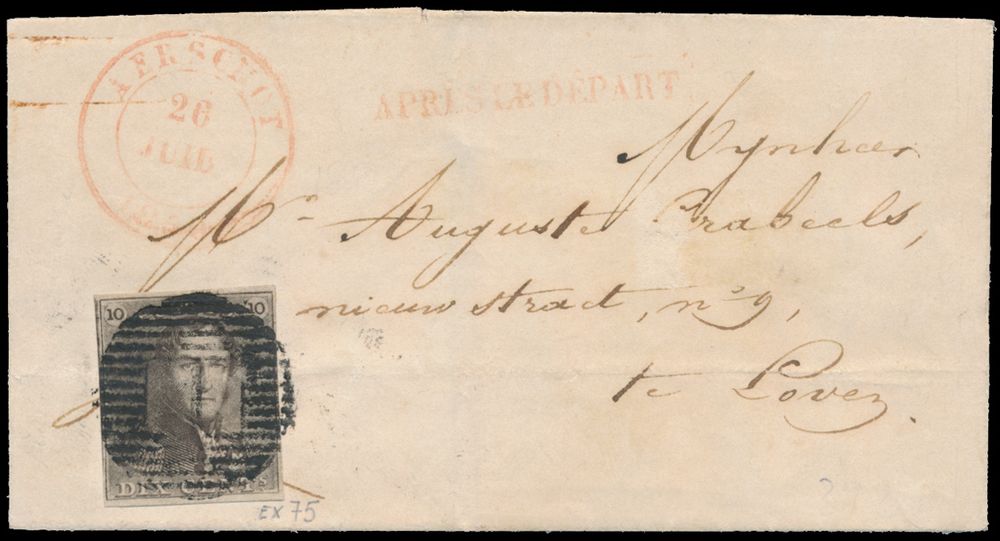 AERSCHOT
26
JUIL
APRÈS LE DÉPART
Mynheer
Mr Auguste Crabeels,
nieuwstraet, n° 9,
te Loven.
10 10
DIX CENTS
EX 75